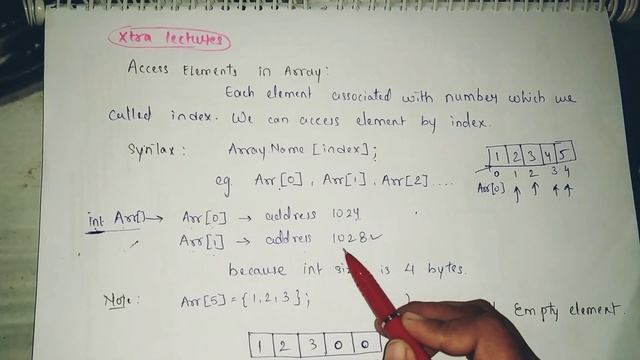 Xtra lectures
Access Elements in Array:
Each element associated with number which we
called index. We can access element by index.
Syntax: Array Name [index];
eg. Arr[0], Arr[1], Arr[2]....
1 2 3 4 5
0 1 2 3 4
Arr[0]
int Arr[] → Arr[0] → address 1024
Arr[1] → address 1028 ✓
because int is 4 bytes.
Note: Arr[5] = {1,2,3};
Empty element.
1 2 3 0 0